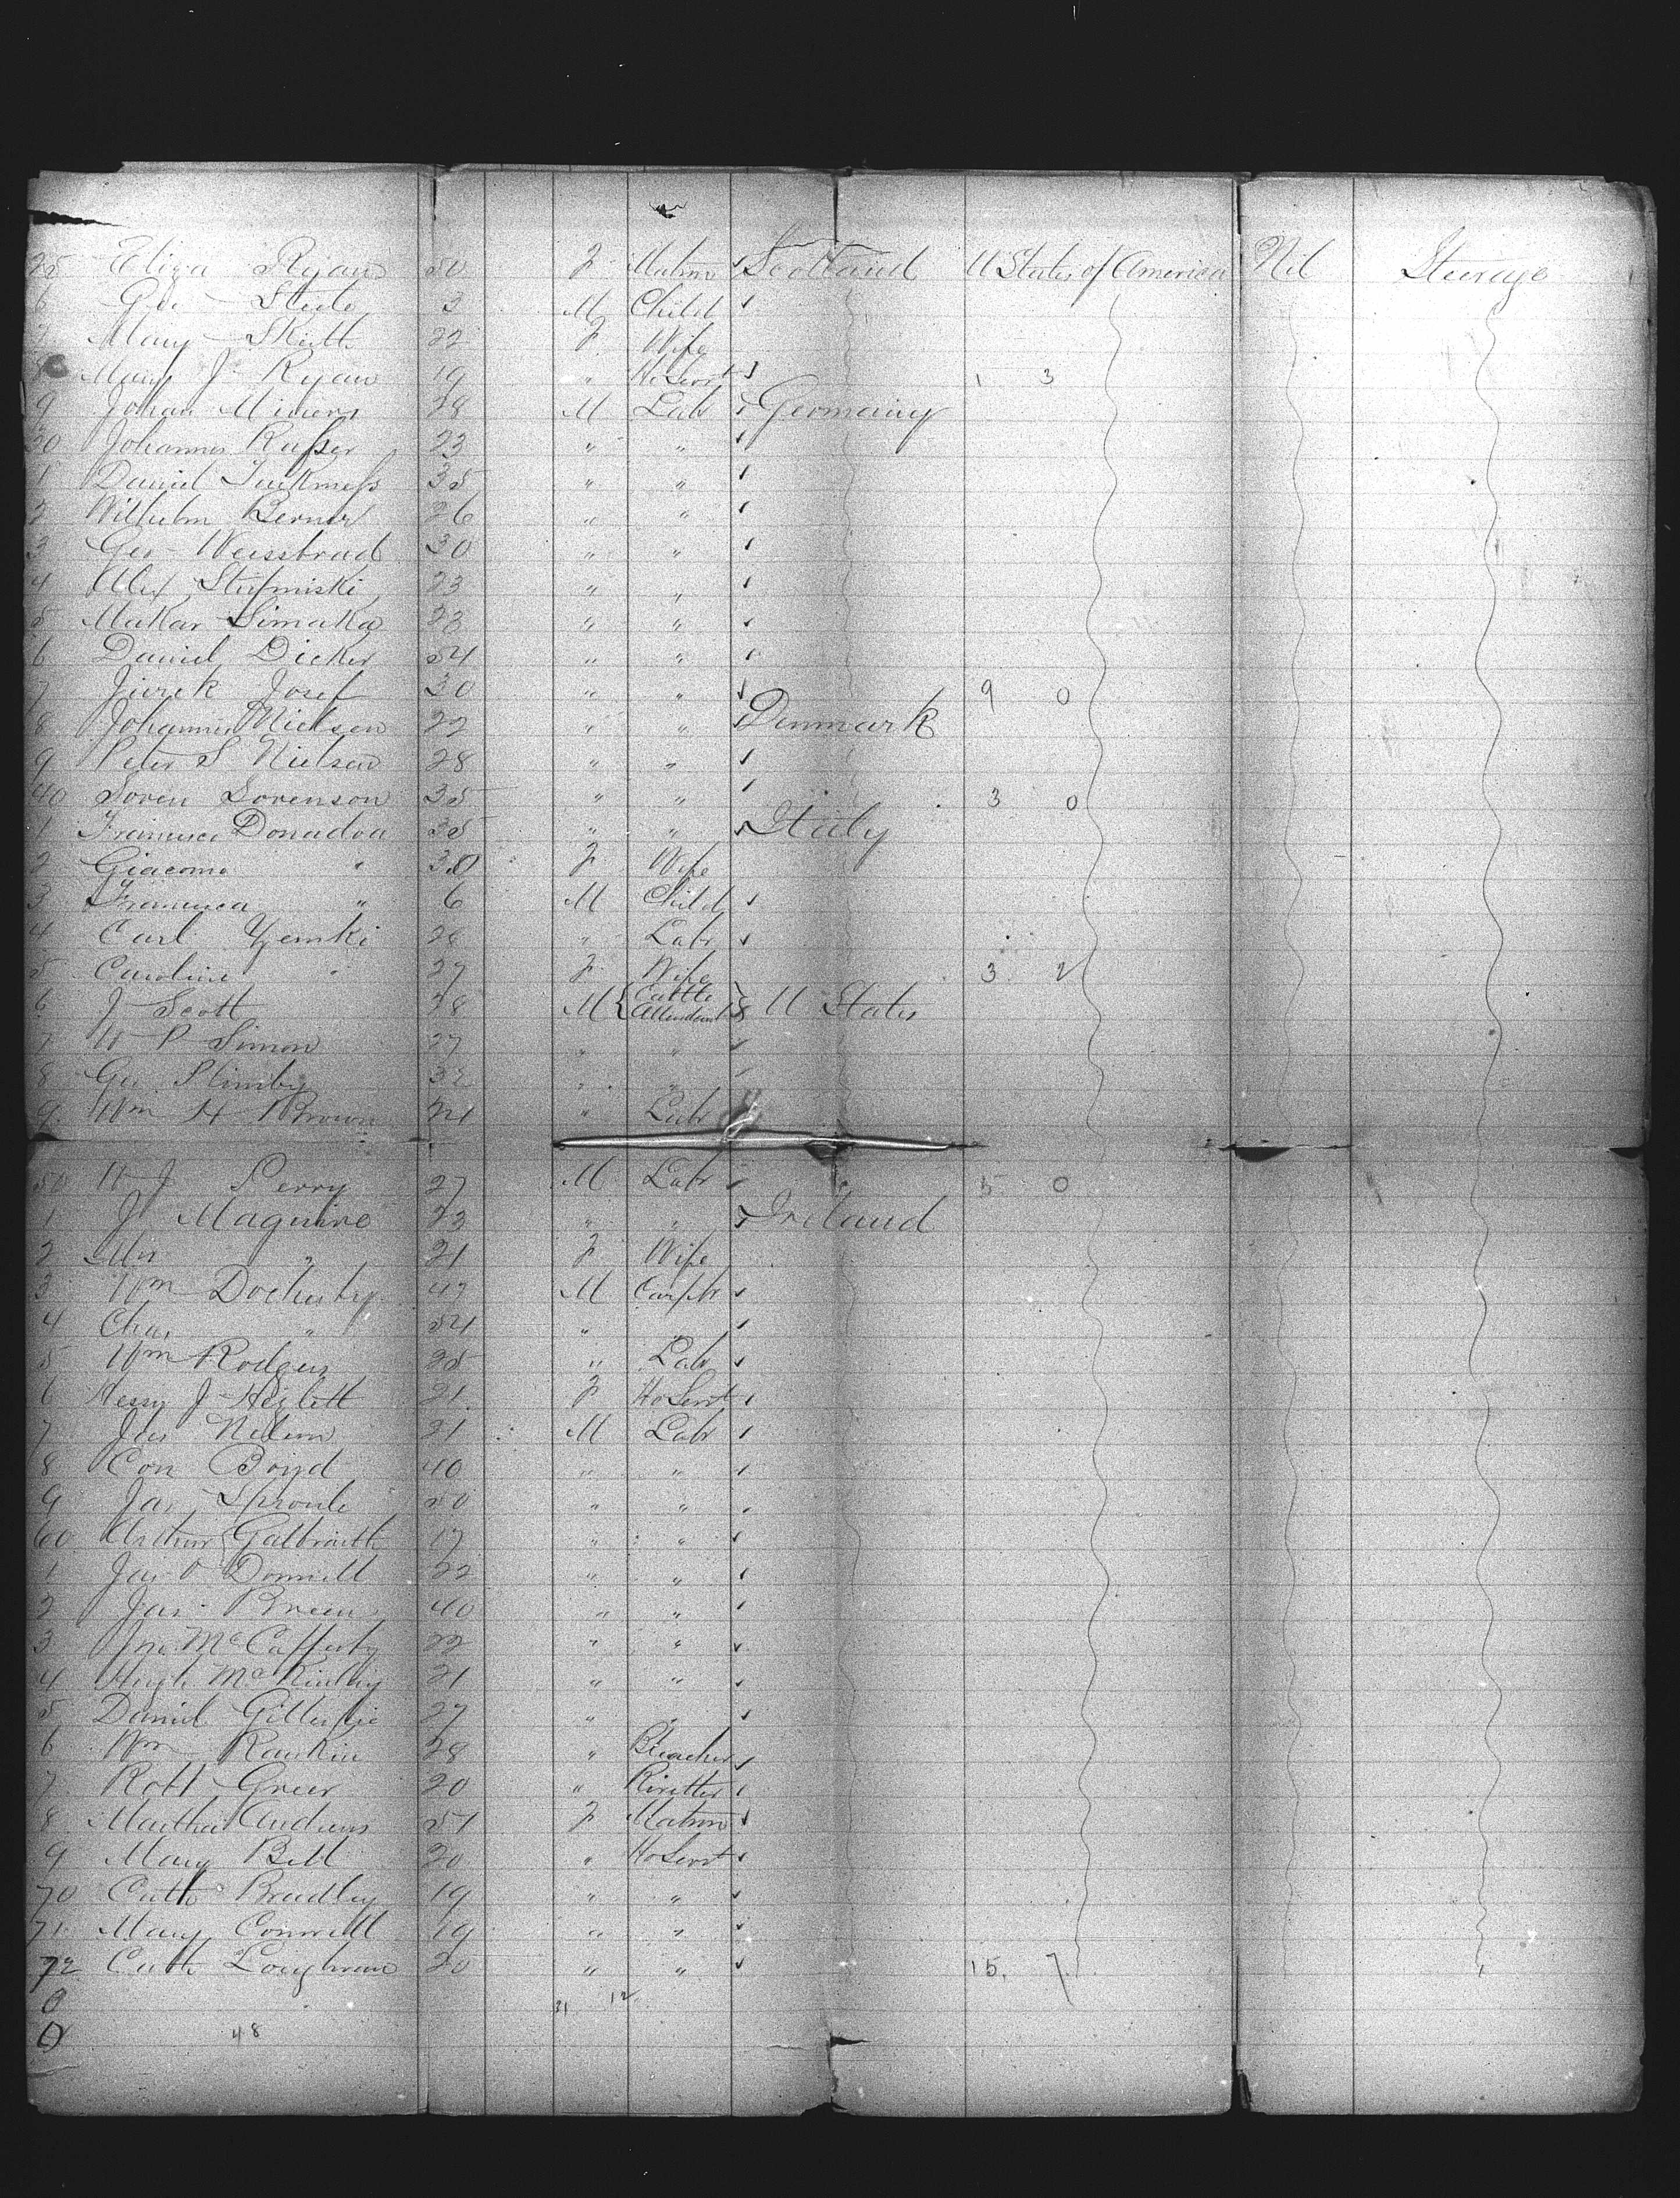 25 Eliza Ryan 50 F Matron Scotland U States of America Nil Steerage
6 Geo Steele 3 M Child
7 Mary Skitt 22 F Wife
8 Mary J Ryan 19 " Ho Servt 1 3
9 Johan Miners 28 M Labr Germany
30 Johannes Rasser 23 " "
1 Daniel 35 " "
2 Wilhelm Berner 26 " "
3 Geo Weissbrad 30 " "
4 Alex 23 " "
5 Makar Simaka 23 " "
6 Daniel Dicker 54 " "
7 Jurek Josef 30 " " 9 0
8 Johannes Nielsen 22 " " Denmark
9 Peter S Nielsen 28 " "
40 Soren Sorenson 35 " " 3 0
1 Francisca Donadoa 35 " " Italy
2 Giacomo " 30 F Wife
3 Francisca " 6 M Child
4 Carl Zemki 28 " Labr
5 Caroline " 27 F Wife 3 2
6 J Scott 28 M Cattle Attendant U States
7 W P Simon 27 " "
8 Geo Slimby 32 " "
9 Wm H Brown 24 " Labr
50 W J Perry 27 M Labr 5 0
1 J Maguire 23 " " Ireland
2 Mrs " 21 F Wife
3 Wm Docherty 47 M Carptr
4 Chas " 54 " "
5 Wm Rodgers 25 " Labr
6 J Hezlett 21 F Ho Servt
7 Jas Nelson 21 M Labr
8 Con Boyd 40 " "
9 Jas Sproule 50 " "
60 Arthur Galbraith 17 " "
1 Jas O Donnell 22 " "
2 Jas Breen 40 " "
3 Jno McCafferty 22 " "
4 Hugh McKinley 21 " "
5 Daniel Gillespie 27 " "
6 Wm Rankin 28 " Bleacher
7 Robt Greer 20 " Rivetter
8 Martha Andrews 51 F Matron
9 Mary Bell 20 " Ho Servt
70 Cath Bradley 19 " "
71 Mary Connell 19 " "
72 Cath Loughran 20 " " 15 7
0 31 12
0 48